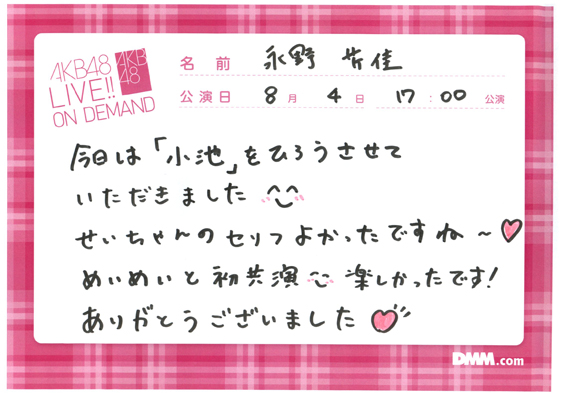 AKB48
LIVE!!
ON DEMAND
AKB
48
名前 永野 芹佳
公演日 8月 4日 17:00 公演
今日は「小池」をひろうさせて
いただきました
せいちゃんのセリフよかったですね〜
めいめいと初共演 楽しかったです!
ありがとうございました
DMM.com